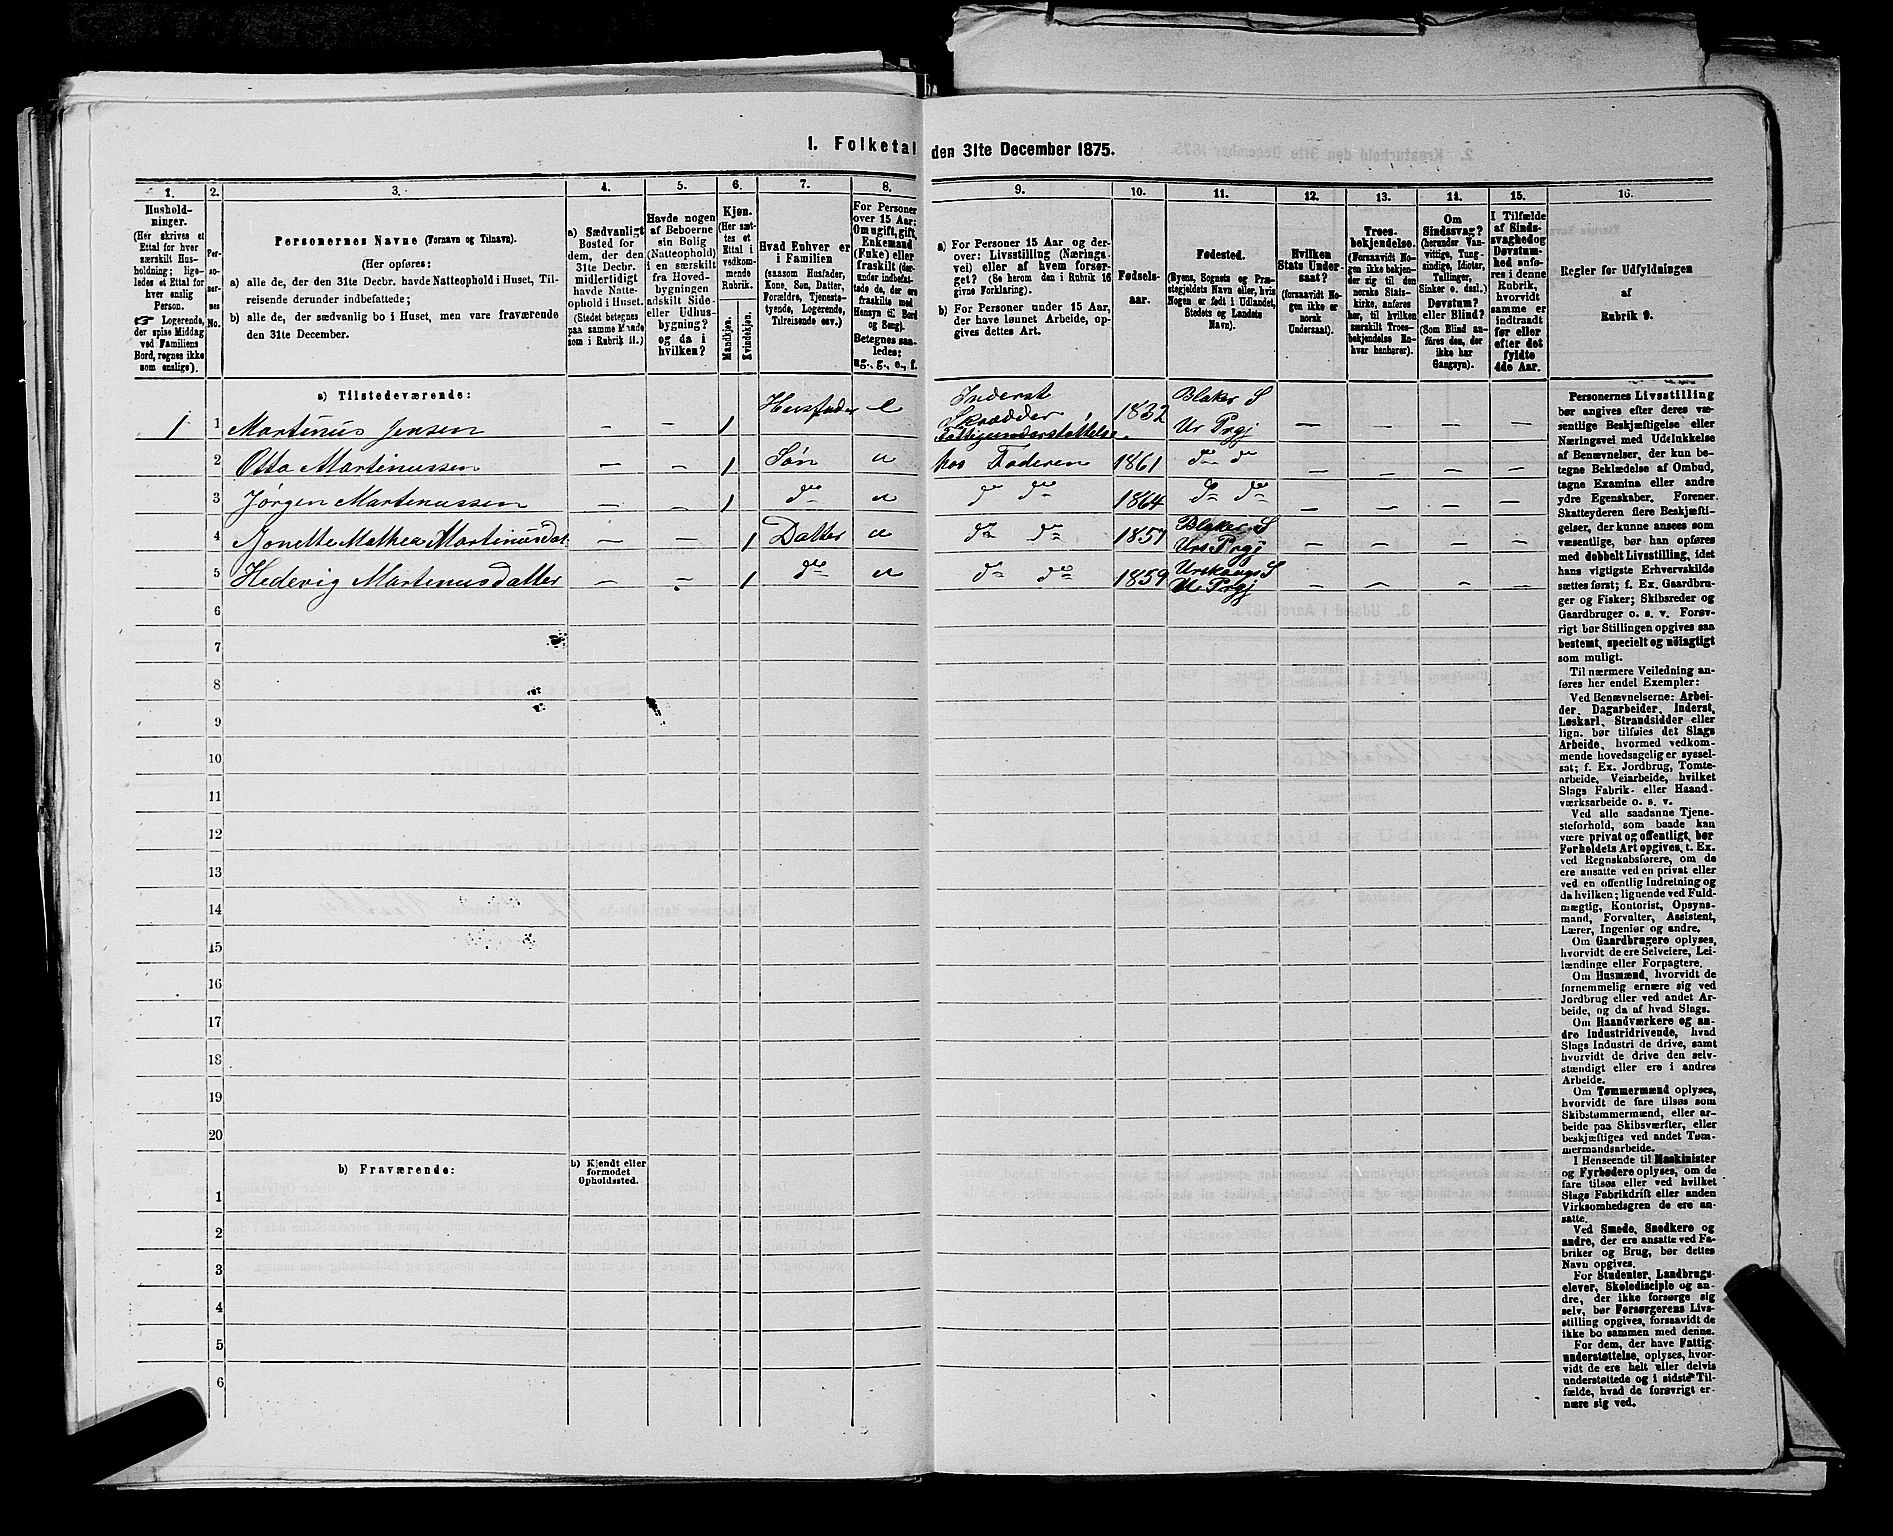 1. Folketal den 31te December 1875.
1. 2. 3. 4. 5. 6. 7. 8. 9. 10. 11. 12. 13. 14. 15. 16.
Hushold-
ninger.
(Her skrives et
Ettal for hver
særskilt Hus-
holdning; lige-
ledes et Ettal for
hver enslig
Person.
☞ Logerende,
der spise Middag
ved Familiens
Bord, regnes ikke
som enslige).
Per-
so-
ner-
nes
No.
Personernes Navne (Fornavn og Tilnavn).
(Her opføres:
a) alle de, der den 31te Decbr. havde Natteophold i Huset, Til-
reisende derunder indbefattede;
b) alle de, der sædvanlig bo i Huset, men vare fraværende
den 31te December.
a) Sædvanligt
Bosted for
dem, der den
31te Decbr.
midlertidigt
havde Natte-
ophold i Huset.
(Stedet betegnes
paa samme Maade
som i Rubrik 11.)
Havde nogen
af Beboerne
sin Bolig
(Natteophold)
i en særskilt
fra Hoved-
bygningen
adskilt Side-
eller Udhus-
bygning?
og da i
hvilken?
Kjøn.
(Her sæt-
tes et
Ettal i
vedkom-
mende
Rubrik.
Mandkjøn.
Kvindekjøn.
Hvad Enhver er
i Familien
(saasom Husfader,
Kone, Søn, Datter,
Forældre, Tjeneste-
tyende, Logerende,
Tilreisende osv.)
For Personer
over 15 Aar:
Om ugift, gift,
Enkemand
(Enke) eller
fraskilt (der-
under indbefat-
tede de, der ere
fraskilte med
Hensyn til Bord
og Seng).
Betegnes saa-
ledes:
ug., g., e., f.
a) For Personer 15 Aar og der-
over: Livsstilling (Nærings-
vei) eller af hvem forsør-
get? (Se herom den i Rubrik 16
givne Forklaring).
b) For Personer under 15 Aar,
der have lønnet Arbeide, op-
gives dettes Art.
Fødsels-
aar.
Fødested.
(Byens, Sognets og Præ-
stegjeldets Navn eller, hvis
Nogen er født i Udlandet,
Stedets og Landets
Navn).
Hvilken
Stats Under-
saat?
(forsaavidt No-
gen ikke er
norsk
Undersaat).
Troes-
bekjendelse.
(Forsaavidt No-
gen ikke bekjen-
der sig til den
norske Stats-
kirke, anføres
her, til hvilken
særskilt Troes-
bekjendelse En-
hver henhører).
Om
Sindssvag?
(herunder Van-
vittige, Tung-
sindige, Idioter,
Tullinger,
Sinker o. desl.)
Døvstum?
eller Blind?
(Som Blind an-
føres den, der
ikke har
Gangsyn).
I Tilfælde
af Sinds-
svaghed og
Døvstum-
hed anfø-
res i denne
Rubrik,
hvorvidt
samme er
indtraadt
før eller
efter det
fyldte
4de Aar.
Regler for Udfyldningen
af
Rubrik 9.
a) Tilstedeværende:
1 1 Martinus Jensen — — 1 Husfader e Inderst Skrædder Fattigunderstøttelse. 1832 Blaker S Ur Prgj — — — —
2 Otto Martinussen — — 1 Søn u hos Faderen 1861 do do — — — —
3 Jörgen Martinussen — — 1 do u do do 1864 do do — — — —
4 Mathea Martinusdat — — 1 Datter u do do 1857 Blaker S Urs Prgj — — — —
5 Hedevig Martinusdatter — — 1 do u do do 1859 Urskougs S Ur Prgj — — — —
6
7
8
9
10
11
12
13
14
15
16
17
18
19
20
b) Fraværende:
b) Kjendt eller
formodet
Opholdssted.
1
2
3
4
5
6
Personernes Livsstilling
bør angives efter deres væ-
sentlige Beskjæftigelse eller
Næringsvei med Udelukkelse
af Benævnelser, der kun be-
tegne Beklædelse af Ombud,
tagne Examina eller andre
ydre Egenskaber. Forener
Skatteyderen flere Beskjæfti-
gelser, der kunne ansees som
væsentlige, bør han opføres
med dobbelt Livsstilling, idet
hans vigtigste Erhvervskilde
sættes først; f. Ex. Gaardbru-
ger og Fisker; Skibsreder og
Gaardbruger o. s. v. Forøv-
rigt bør Stillingen opgives saa
bestemt, specielt og nøiagtigt
som muligt.
Til nærmere Veiledning an-
føres her endel Exempler:
Ved Benævnelserne: Arbei-
der, Dagarbeider, Inderst,
Løskarl, Strandsidder eller
lign. bør tilføies det Slags
Arbeide, hvormed vedkom-
mende hovedsagelig er syssel-
sat; f. Ex. Jordbrug, Tomte-
arbeide, Veiarbeide, hvilket
Slags Fabrik- eller Haand-
værksarbeide o. s. v.
Ved alle saadanne Tjene-
steforhold, som baade kan
være privat og offentligt, bør
Forholdets Art opgives, f. Ex.
ved Regnskabsførere, om de
ere ansatte ved en privat eller
ved en offentlig Indretning og
da hvilken; lignende ved Fuld-
mægtig, Kontorist, Opsyns-
mand, Forvalter, Assistent,
Lærer, Ingeniør og andre.
Om Gaardbrugere oplyses,
hvorvidt de ere Selveiere, Lei-
lændinge eller Forpagtere.
Om Husmænd, hvorvidt de
fornemmelig ernære sig ved
Jordbrug eller ved andet Ar-
beide, og da af hvad Slags.
Om Haandværkere og an-
dre Industridrivende, hvad
Slags Industri de drive, samt
hvorvidt de drive den selv-
stændigt eller ere i andres
Arbeide.
Om Tømmermænd oplyses,
hvorvidt de fare tilsøs som
Skibstømmermænd, eller ar-
beide paa Skibsværfter, eller
beskjæftiges ved andet Tøm-
mermandsarbeide.
I Henseende til Maskinister
og Fyrbødere oplyses, om de
fare tilsøs eller ved hvilket
Slags Fabrikdrift eller anden
Virksomhedsgren de ere an-
satte.
Ved Smede, Snedkere og
andre, der ere ansatte ved Fa-
briker og Brug, bør dettes
Navn opgives.
For Studenter, Landbrugs-
elever, Skoledisciple og an-
dre, der ikke forsørge sig
selv, bør Forsørgerens Livs-
stilling opgives, forsaavidt de
ikke bo sammen med denne.
For dem, der have Fattig-
understøttelse, oplyses, hvor-
vidt de ere helt eller delvis
understøttede og i sidste Til-
fælde, hvad de forøvrigt er-
nære sig ved.